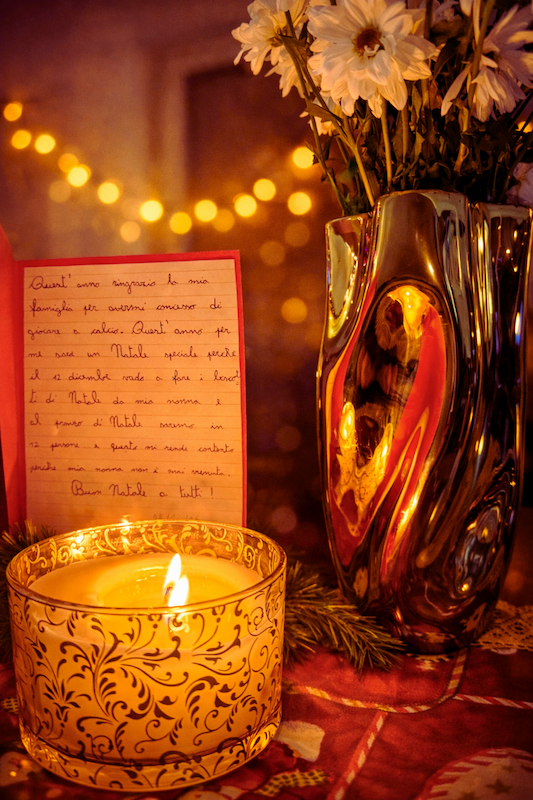 Quest' anno ringrazio la mia
famiglia per avermi concesso di
giocare a calcio. Quest' anno per
me sarà un Natale speciale perchè
il 12 dicembre vado a fare i biscot-
ti di Natale da mia nonna e
al pranzo di Natale saremo in
12 persone e questo mi rende contento
perchè mia nonna non è mai venuta.
Buon Natale a tutti!